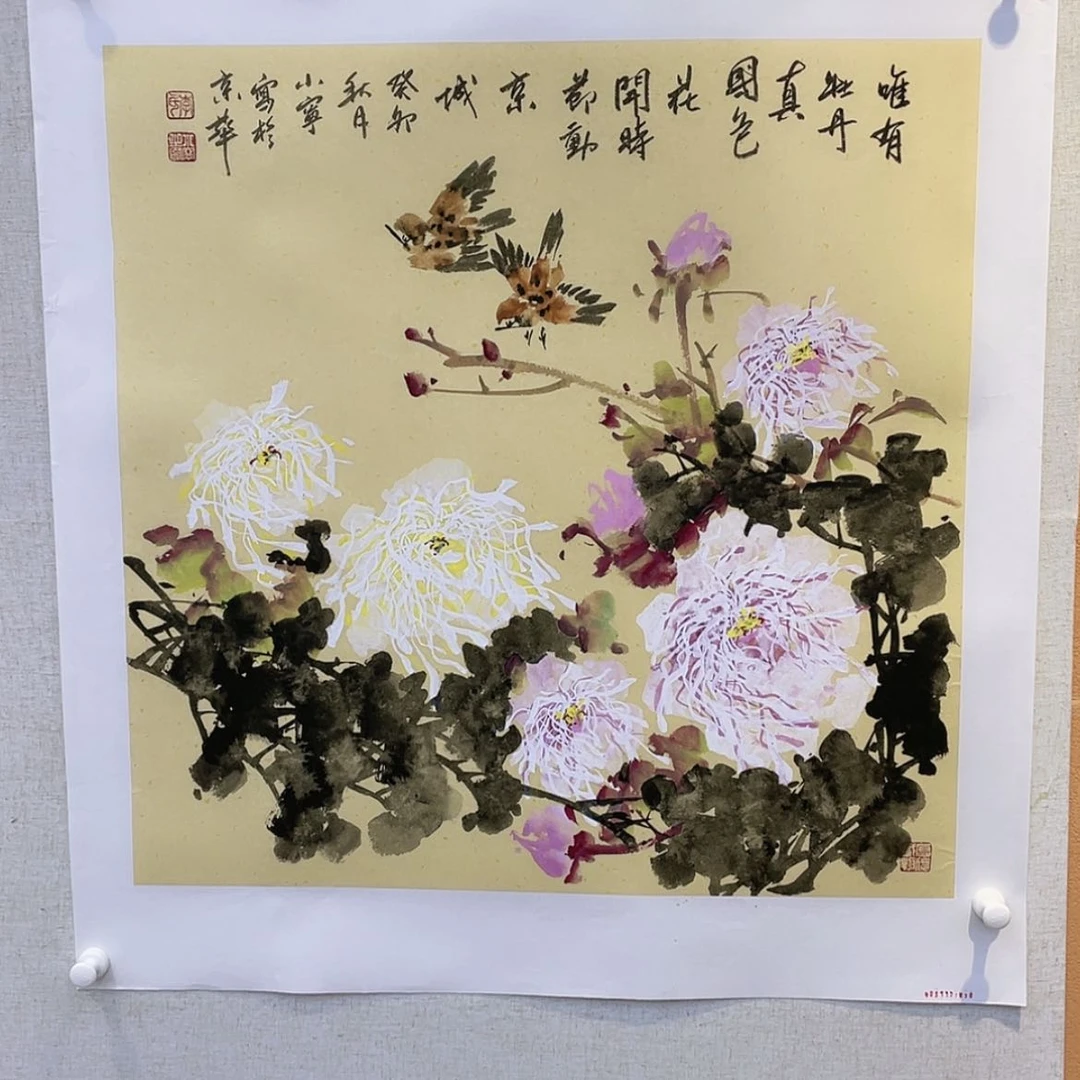 唯有
牡丹
真
國色
花
開時
節動
京
城
癸卯
秋月
小寧
寫於
京華